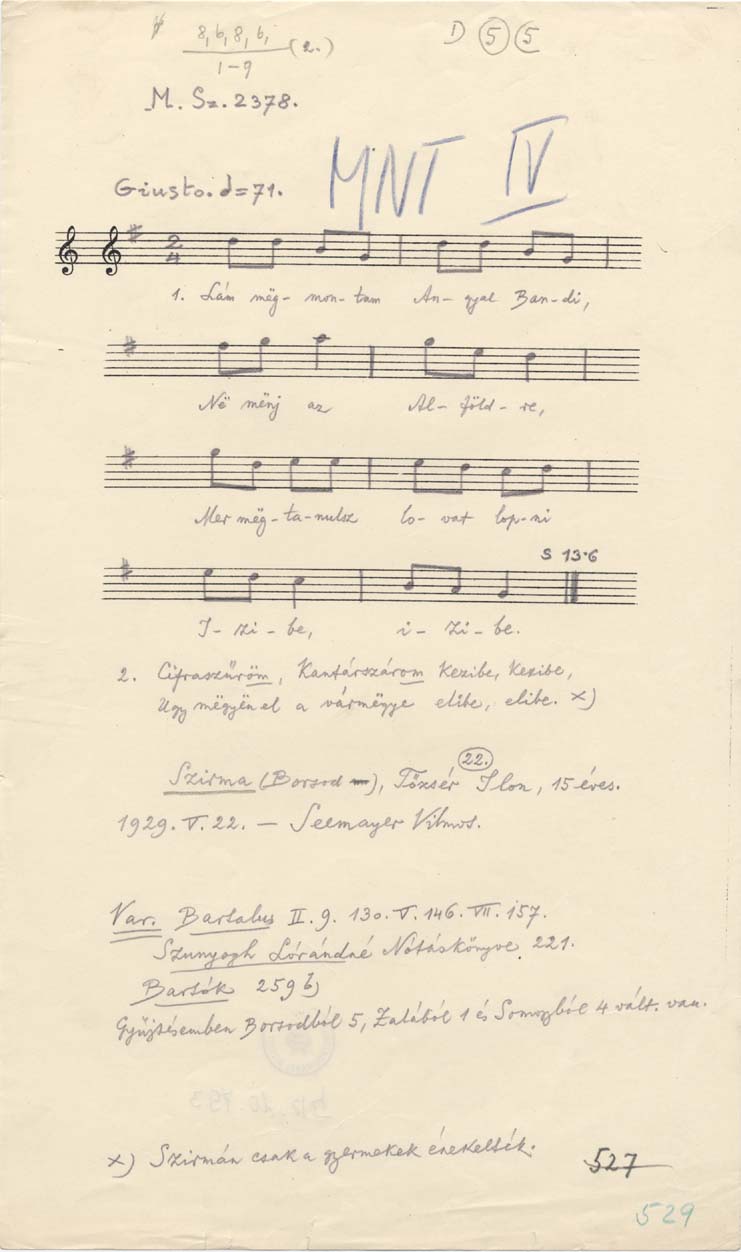 8, 6, 8, 6, (2.)
1-9
D 5 5
M. Sz. 2378.
MNT IV
Giusto. d=71.
2
4
1. Lám mëg- mon- tam An- gyal Ban- di,
Në mënj az Al- föld- re,
Mer mëg-ta-nulsz lo- vat lop-ni
S 13.6
I- zi- be, i- zi- be.
2. Cifraszűröm, Kantárszárom kezibe, kezibe,
Ugy mëgyën el a vármëgye elibe, elibe. x)
22.
Szirma (Borsod), Tőzsér Ilon, 15 éves.
1929. V. 22. — Seemayer Vilmos.
Var. Bartalus II. 9. 130. V. 146. VII. 157.
Szunyogh Lórándné Nótáskönyve 221.
Bartók 259 b)
Gyüjtésemben Borsodból 5, Zalából 1 és Somogyból 4 vált. van.
x) Szirmán csak a gyermekek énekelték.
527
529